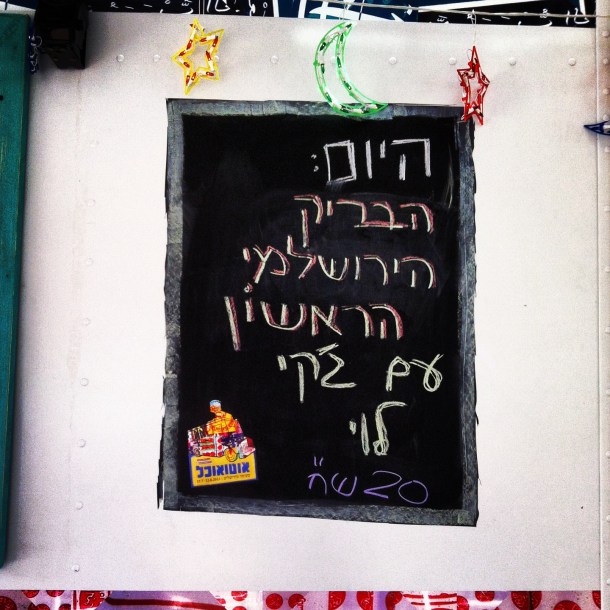 היום:
הבריק
הירושלמי
הראשון
עם ג'קי
לוי
20 ש"ח
אוטואוכל